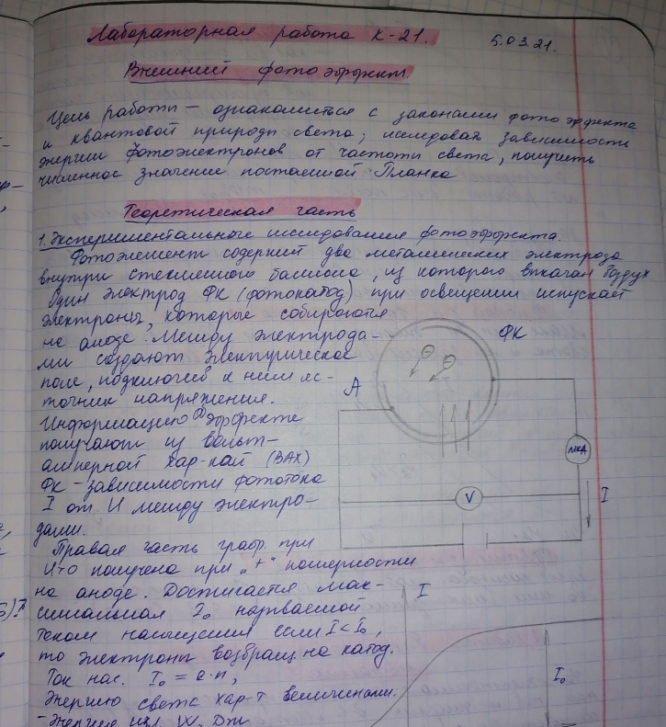 Лабораторная работа К-21.
5.03.21.
Внешний фотоэффект.
Цель работы – ознакомиться с законами фотоэффекта
и квантовой природы света; исследовать зависимость
энергии фотоэлектронов от частоты света, получить
численное значение постоянной Планка
Теоретическая часть
1. Экспериментальное исследования фотоэффекта.
Фотоэлемент содержит два металлических электрода
внутри стеклянного баллона, из которого выкачан воздух
Один электрод ФК (фотокатод) при освещении испускает
электроны, которые собираются
на аноде. Между электрода-
ми создают электрическое
поле, подключив к ним ис-
точник напряжения.
Информацию о эффекте
получают из вольт-
амперной хар-кой (ВАХ)
ФК – зависимости фототока
I от U между электро-
дами.
Правая часть граф. при
U>0 получена при "+" полярности
на аноде. Достигается мак-
симальная I₀ называемой
током насыщения если I<I₀,
то электроны возвращ. на катод.
Ток нас. I₀ = e·n,
Энергию света хар-т величинами.
- Энергия изл. W, Дж
ФК
А
мкА
V
I
I
I₀